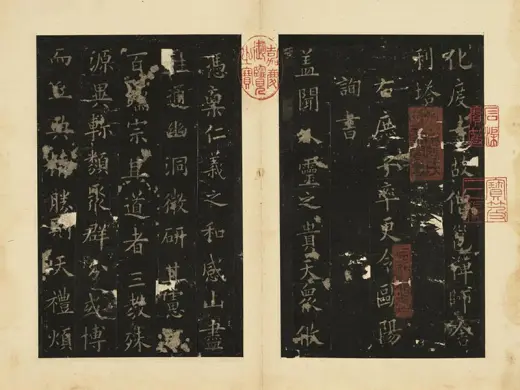 化度寺故僧邕禪師舍
利塔
右庶子率更令歐陽
詢書
蓋聞人靈之貴天象攸
憑稟仁義之和感山盡
性通幽洞微研其慮
百宗其道者三教殊
源異軫類聚群分或博
而勝則禮煩
嘉慶御覽之寶